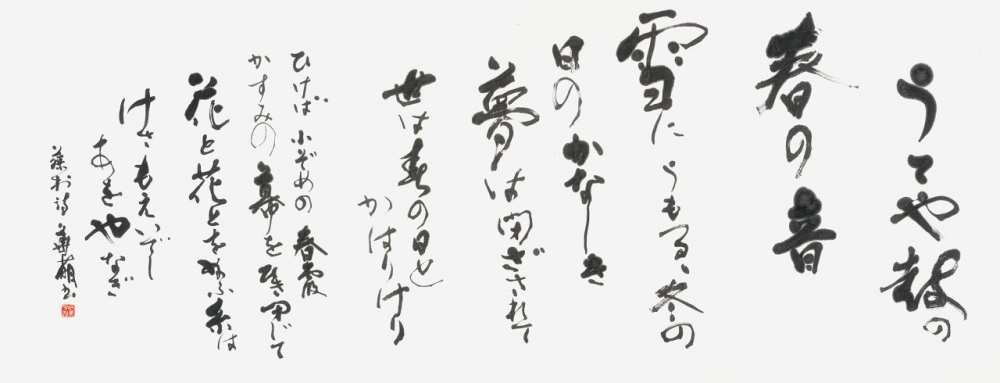 うてや鼓の
春の音
雪にうもるゝ冬の
日のかなしき
夢は閉ざされて
世は春の日と
かはりけり
ひけば小ぞめの春霞
かすみの幕をひき閉じて
花と花とをぬふ糸は
けさもえいでし
あをやなぎ
藤村詩 書